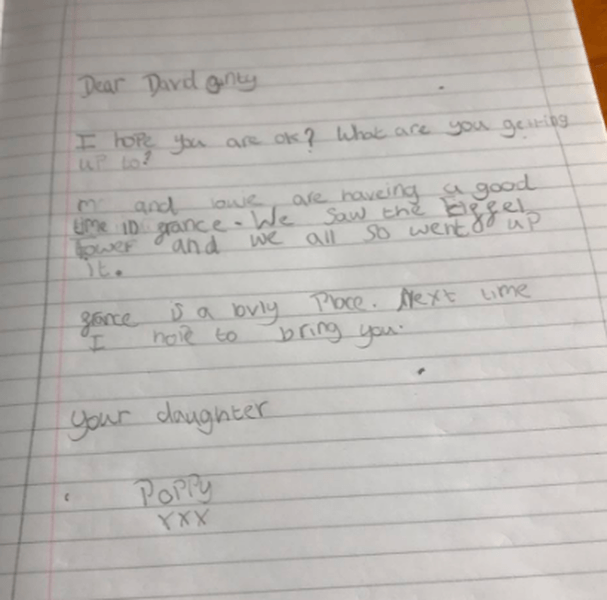 Dear David
I hope you are ok? What are you getting
up to?
and are haveing a good
time in grance. We saw the Eiffel
Tower and we all so went up
it.
grance is a lovly Place. Next time
I hope to bring you.
your daughter
Poppy
xxx